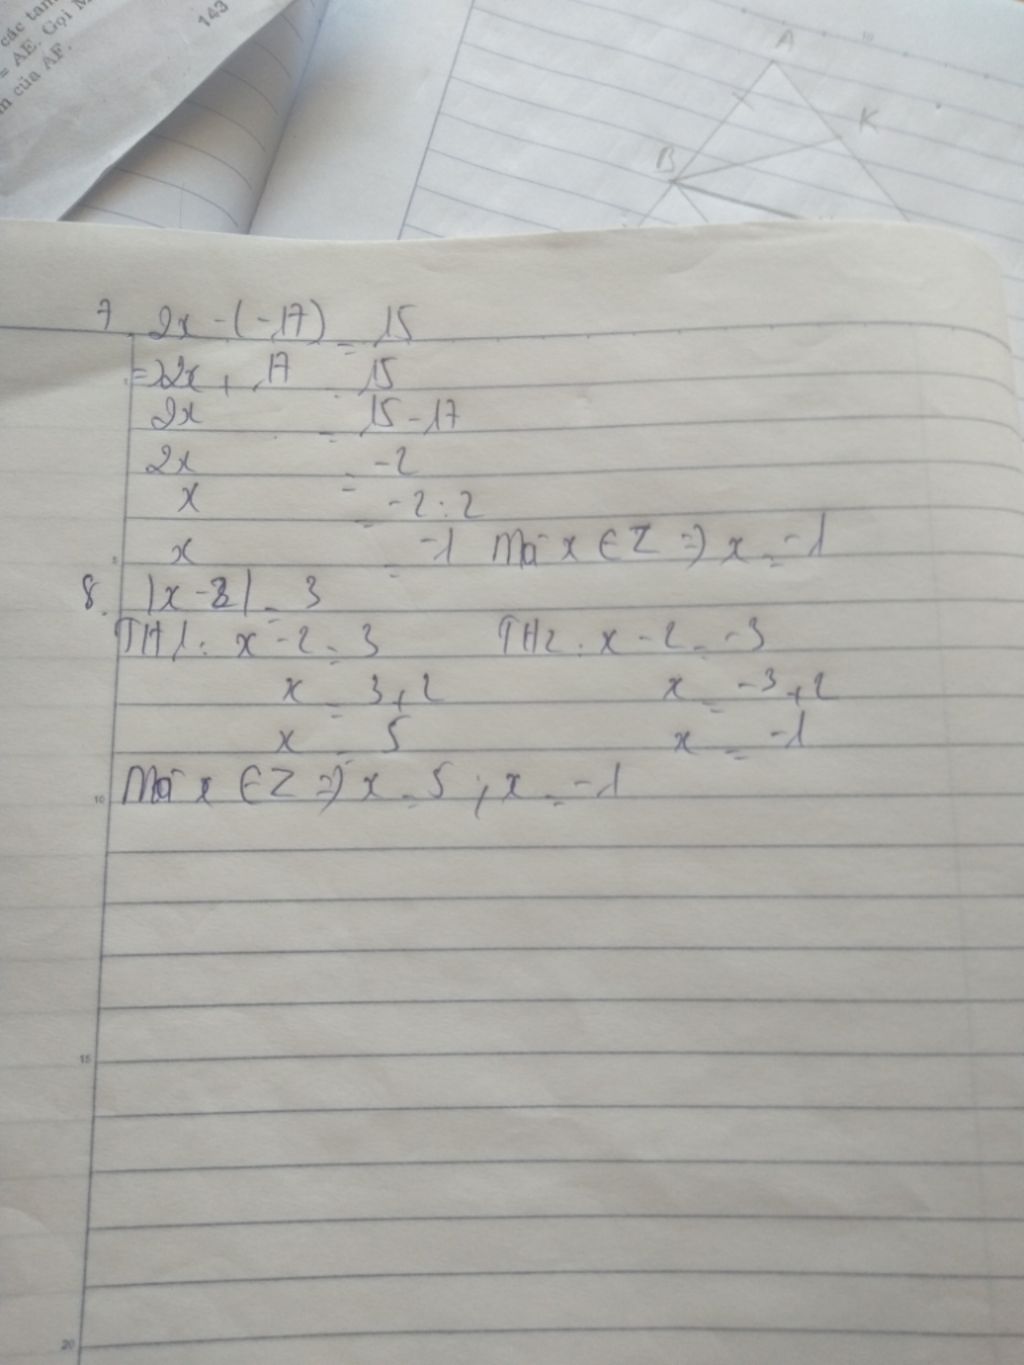 các tam
= AE. Gọi M
m của AF.
143
A
K
B
7. 2x - (-17) = 15
=> 2x + 17 15
2x = 15 - 17
2x = -2
x = -2 : 2
x = -1 Mà x ∈ Z => x = -1
8. |x - 2| = 3
TH1: x - 2 = 3 TH2: x - 2 = -3
x = 3 + 2 x = -3 + 2
x = 5 x = -1
Mà x ∈ Z => x = 5 ; x = -1
5
10
15
20